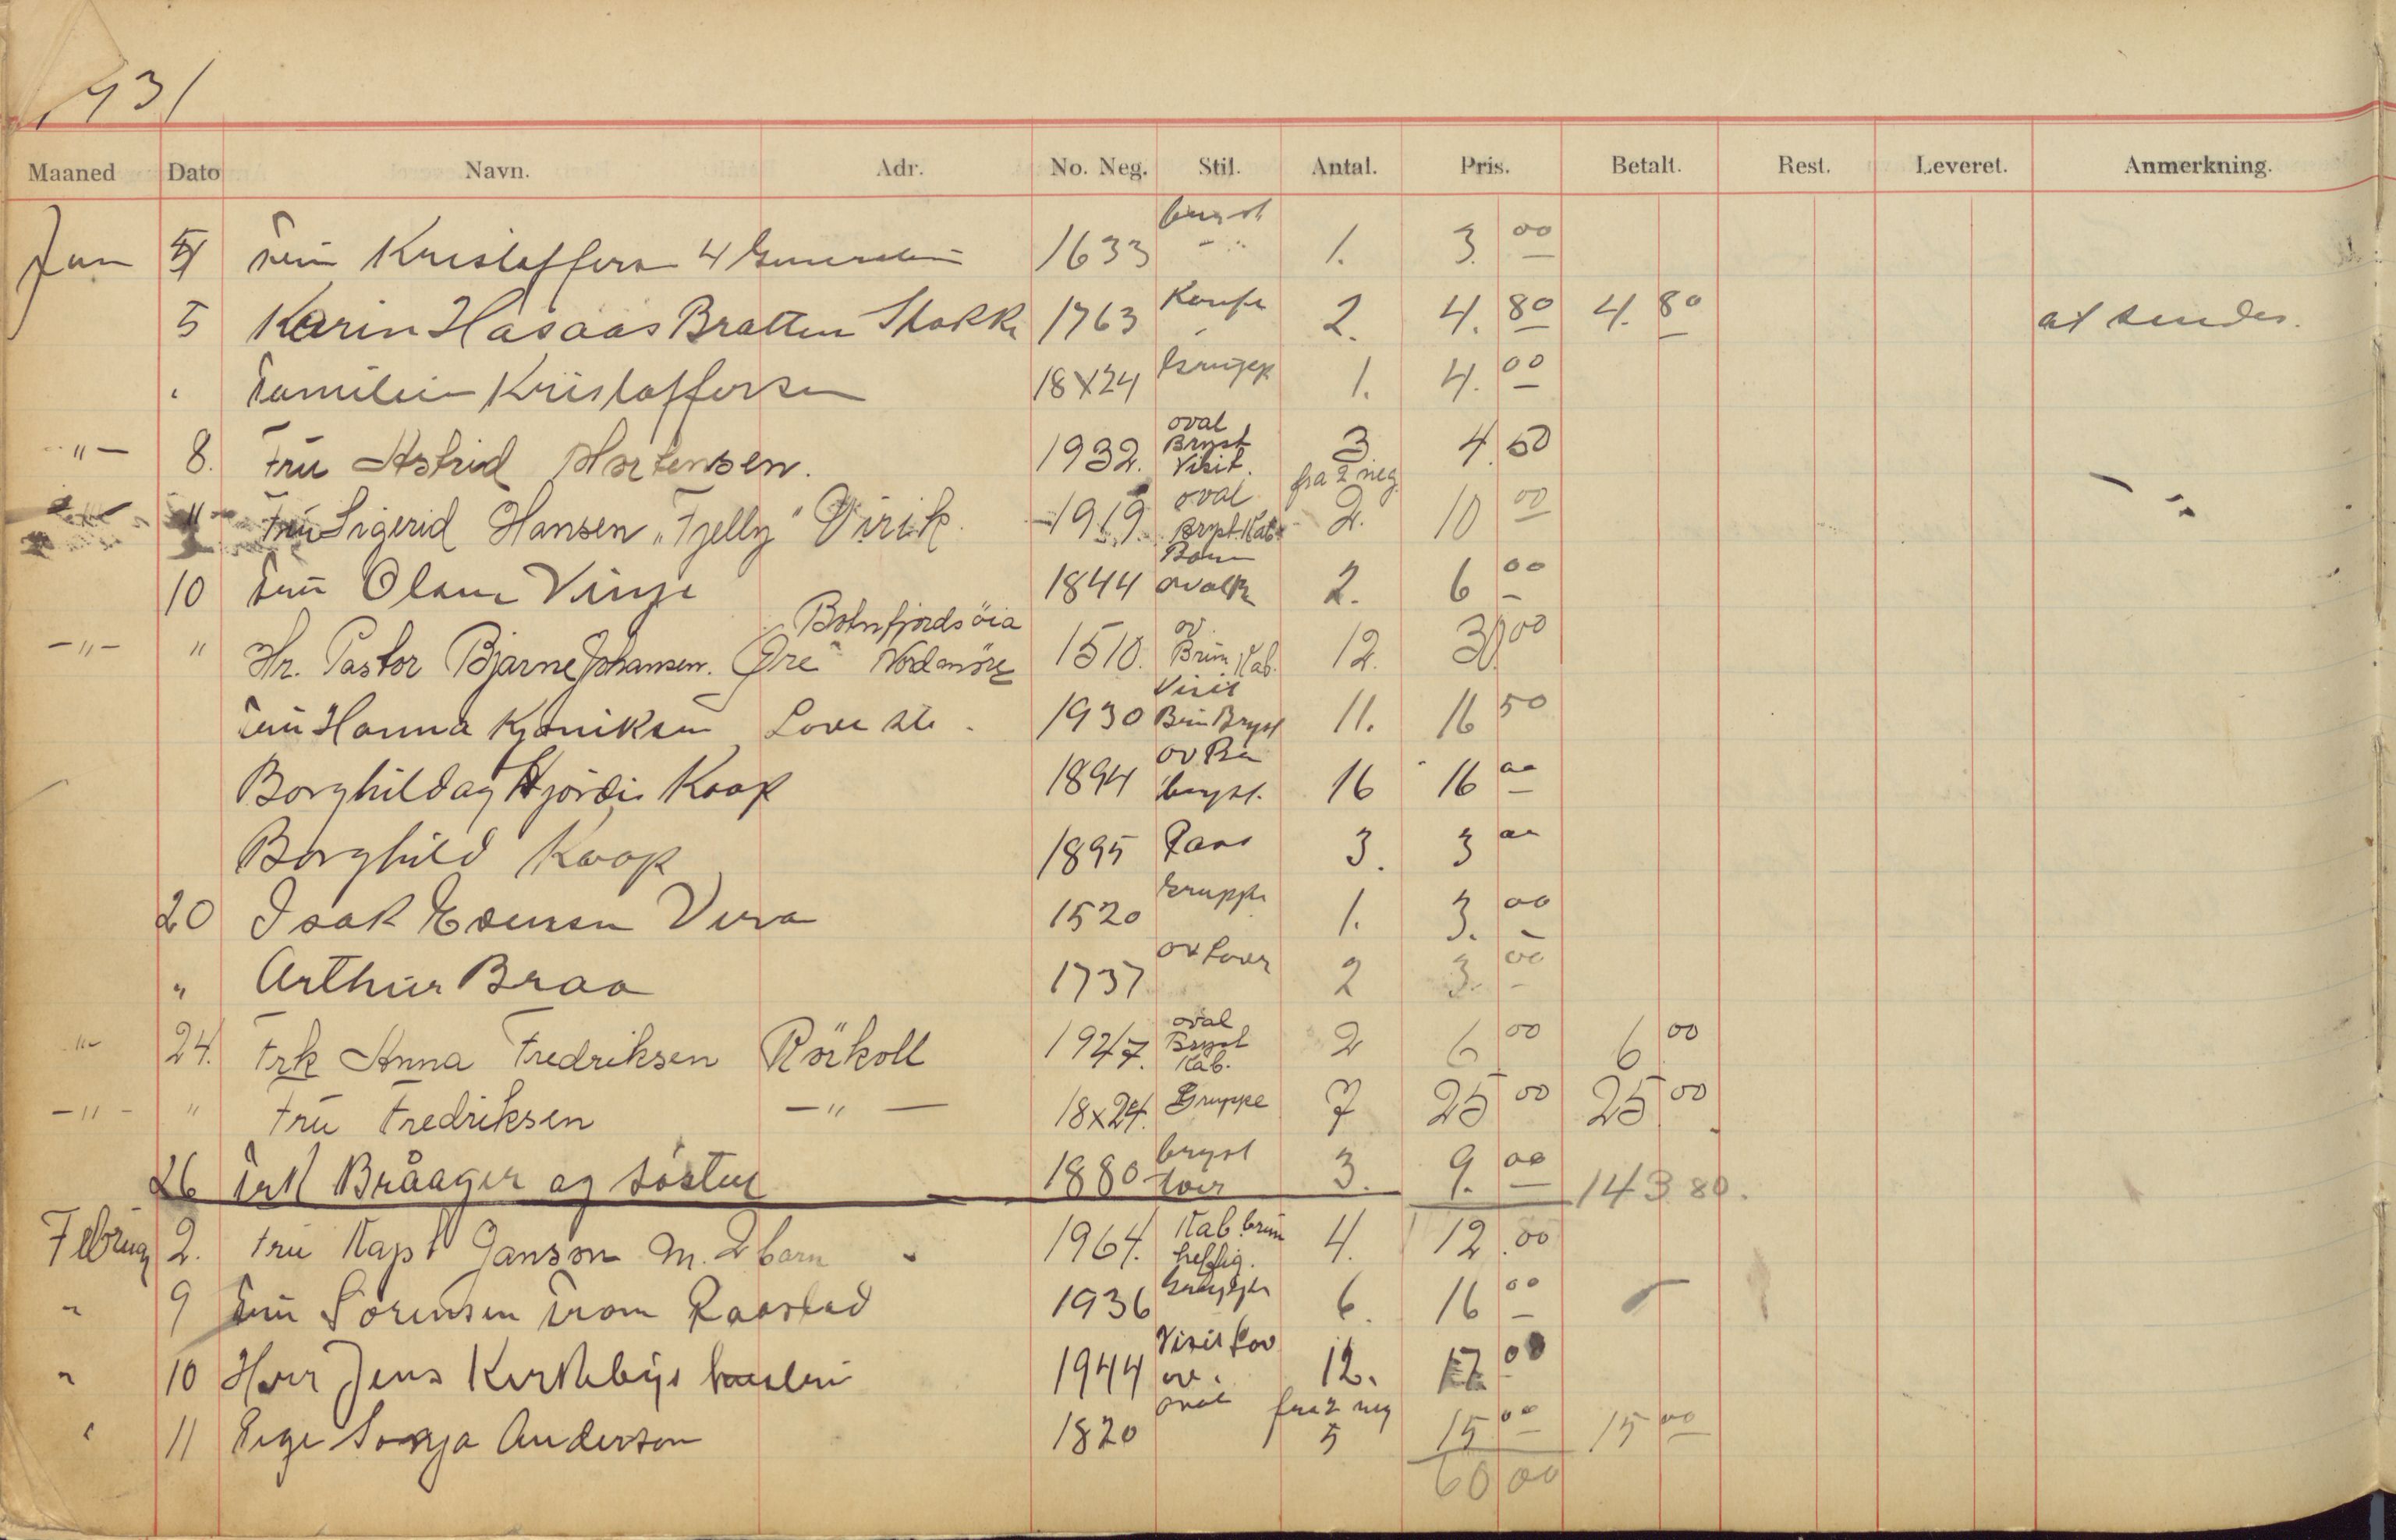 1931
Maaned Dato Navn. Adr. No. Neg. Stil. Antal. Pris. Betalt. Rest. Leveret. Anmerkning.
Jan 5 Fru Kristoffersen 4 1633 bryst 1. 3. 00
5 Karin Hasaas Bratten Stokke 1763 2. 4. 80 4. 80 at sendes.
" Familien Kristoffersen 18x24 Gruppe 1. 4. 00
-"- 8. Fru Astrid Mortensen. 1932. oval Bryst Visit. 3 4.50
-"- " Fru Sigerid Hansen „Fjelly" Virik. 1919. oval Bryst. Kab. fra 2 neg. 2. 10 00
10 Fru Olsen Vinje 1844 Barn 2. 6 00
-"- " Hr. Pastor Bjarne Johansen. Øre Botnfjordsöia Nordmöre 1510. ov. Brun Kab. 12. 30 00
Fru Hanna Love st. 1930 Visit Brun Bryst 11. 16 50
Borghild og Hjördis Koop 1894 ov bryst. 16 16 00
Borghild Koop 1895 Pass 3. 3 00
20 Isak Vera 1520 Gruppe 1. 3. 00
" Arthur Braa 1737 ov 2 3. 00
"- 24. Frk Anna Fredriksen Rörkoll 1927. oval Bryst Kab. 2 6 00 6 00
-"- " Fru Fredriksen -"- 18x24. Gruppe 7 25 00 25 00
26 Frk Bråager og söster 1880 bryst 3. 9. 00 143 80.
Februar 2. Fru Kapt Janson m. 2 barn 1964. Kab. brun heftig. 4. 12.00
" 9 Fru Sörensen Raastad 1936 Gruppe 6. 16 00
" 10 Herr Jens 1944 Visit ov. 12. 17 00
" 11 Pige Sonja Anderson 1820 oval fra 2 neg 5 15 00 15 00
60 00